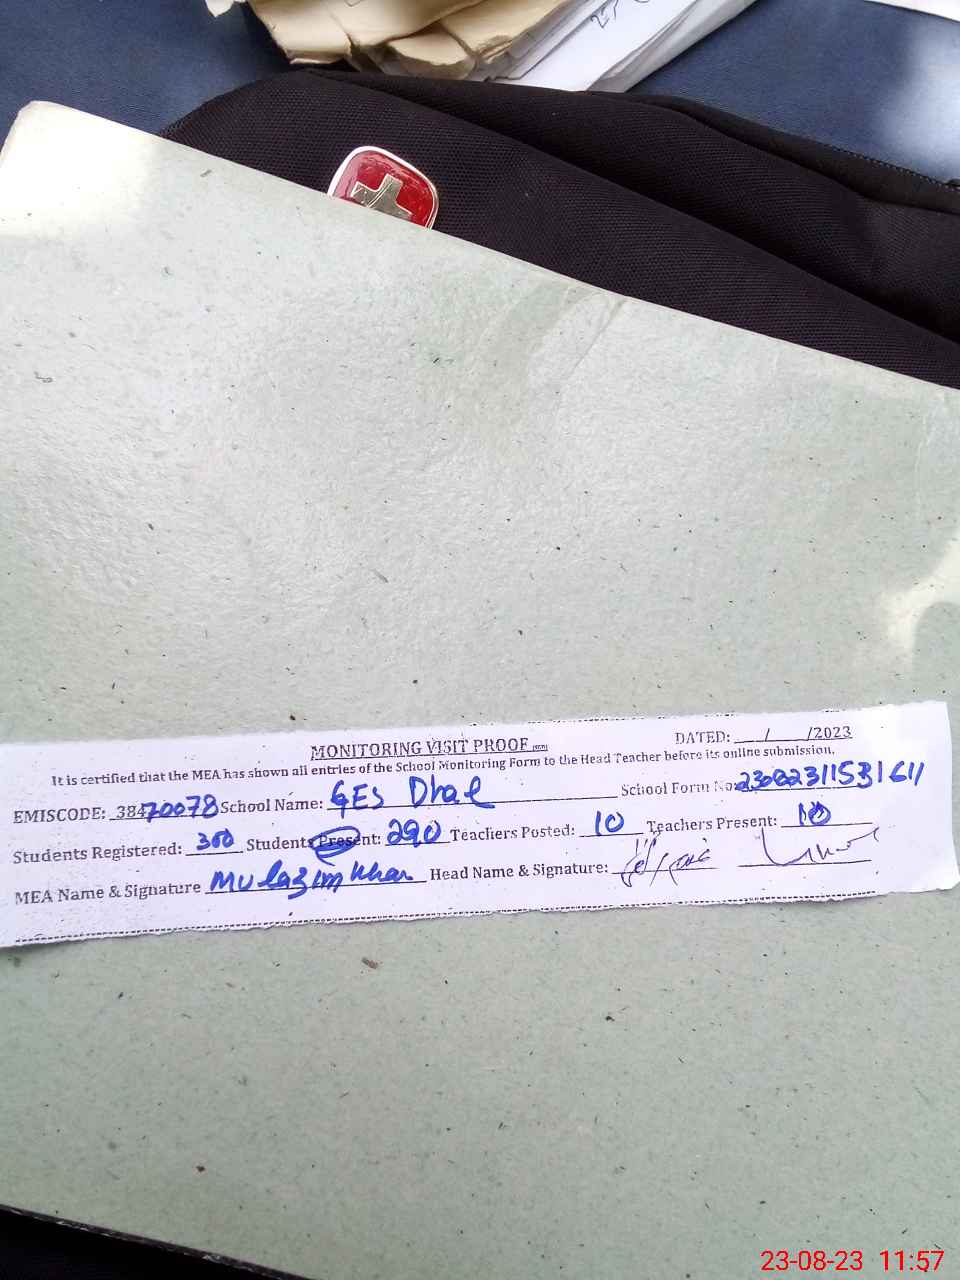 MONITORING VISIT PROOF
DATED: ___/___/2023
It is certified that the MEA has shown all entries of the School Monitoring Form to the Head Teacher before its online submission.
EMISCODE: 38470078 School Name: GES Dhal School Form No: 23082311531611
Students Registered: 300 Students Present: 290 Teachers Posted: 10 Teachers Present: 10
MEA Name & Signature Mulazim Khan Head Name & Signature:
23-08-23 11:57